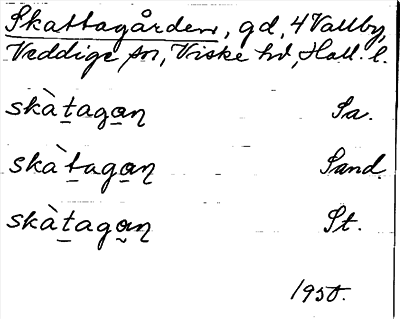 Skattagården, gd, 4 Vallby,
Veddige sn, Viske hd, Hall. l.
skàtagan̥ Sa.
skàtagan̥ Sand.
skàtagan̥ St.
1950.